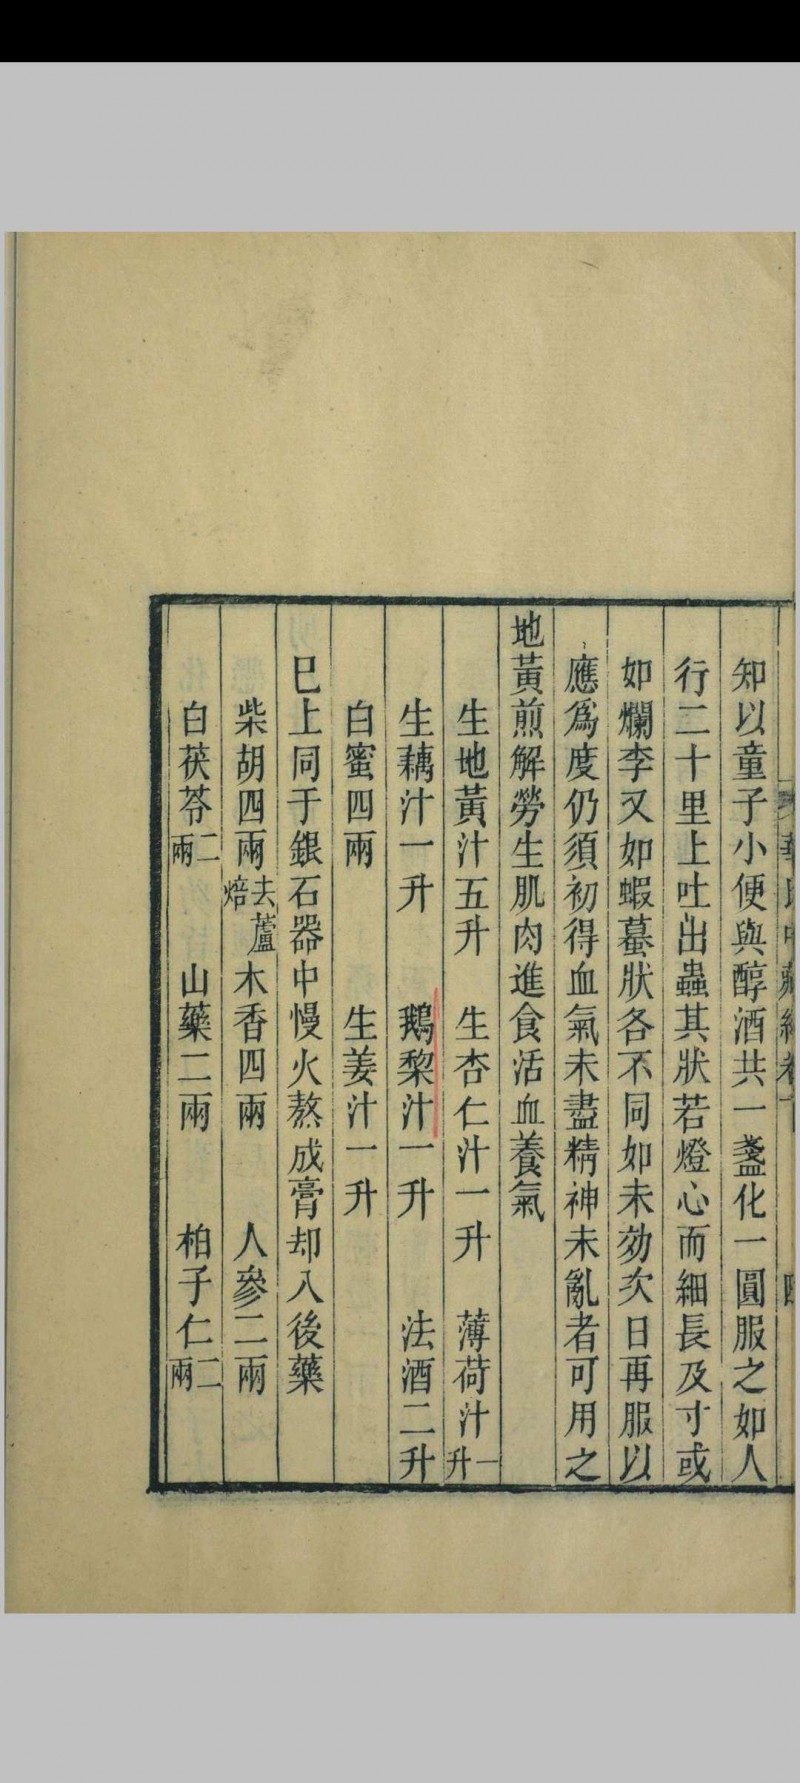 知以童子小便與醇酒共一盞化一圓服之如人
行二十里上吐出蟲其狀若燈心而細長及寸或
如爛李又如蝦蟇狀各不同如未効次日再服以
應爲度仍須初得血氣未盡精神未亂者可用之
地黃煎解勞生肌肉進食活血養氣
生地黃汁五升 生杏仁汁一升 薄荷汁一升
生藕汁一升 鵝棃汁一升 法酒二升
白蜜四兩 生姜汁一升
巳上同于銀石器中慢火熬成膏却入後藥
柴胡四兩去蘆焙 木香四兩 人參二兩
白茯苓二兩 山藥二兩 柏子仁二兩